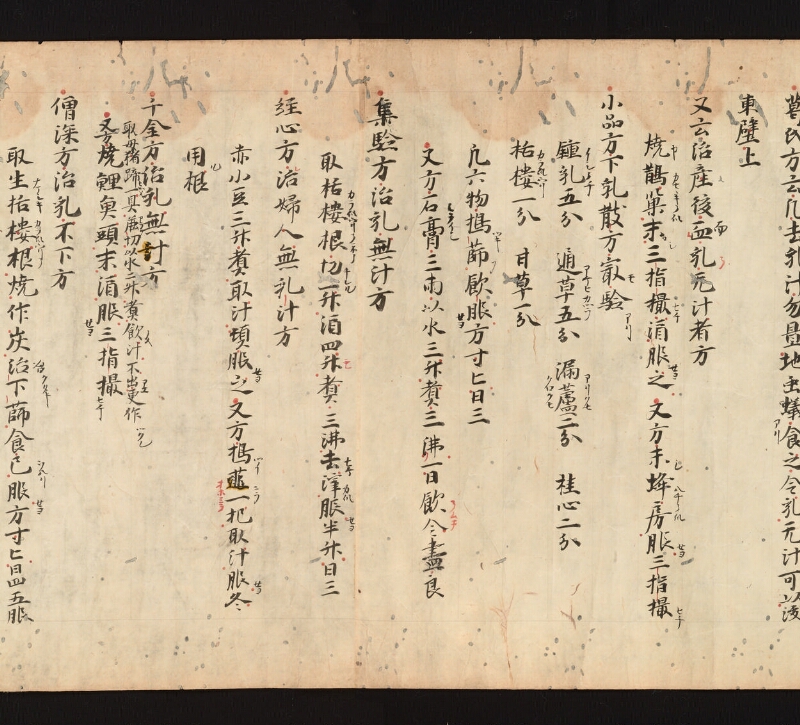 葛氏方云凡去乳汁勿置地虫蟻食之令乳无汁可以溌
東壁上
又云治産後血乳无汁者方
燒鵲巢末三指撮酒服之 又方末蜂房服三指撮
小品方下乳散方最驗
鍾乳五分 通草五分 漏蘆二分 桂心二分
栝樓一分 甘草一分
凡六物搗篩飲服方寸匕日三
又方石膏三兩以水三升煮三沸一日飲令盡良
集驗方治乳無汁方
取栝樓根切一升酒四升煮三沸去滓服半升日三
經心方治婦人無乳汁方
赤小豆三升煮取汁頓服之 又方搗韮一把取汁服冬
用根
千金方治乳無汁方
取母猪蹄一具切以水二升煮飲汁不出更作
又方燒鯉魚頭末酒服三指撮
僧深方治乳不下方
取生栝樓根燒作炭治下篩食已服方寸匕日四五服